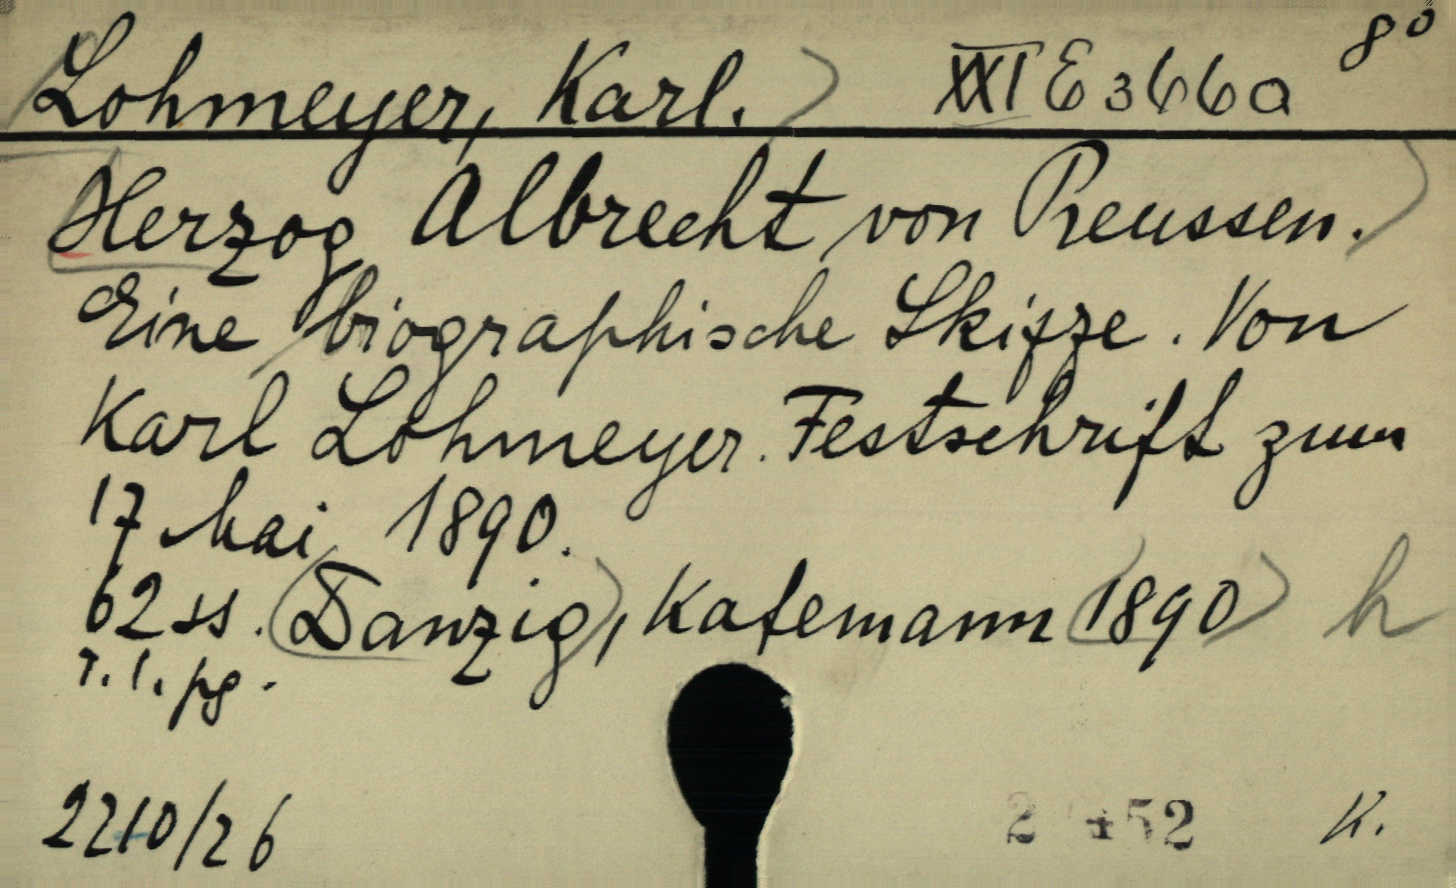 Lohmeyer, Karl. XXI E 366a 8º
Herzog Albrecht von Preussen.
Eine biographische Skizze. Von
Karl Lohmeyer. Festschrift zum
17 Mai 1890.
62 ss. Danzig, Kafemann 1890 h
r. l. pg.
2210/26 K.